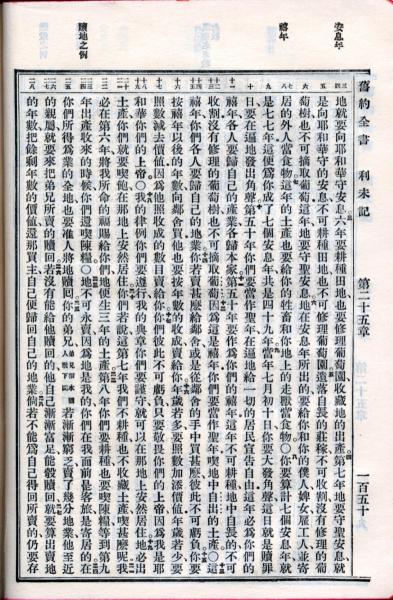 安息年
禧年
贖地之例
舊約全書 利未記 第二十五章 一百五十
地就要向耶和華守安息六年要耕種田地也要修理葡萄園收藏地的出產第七年地要守聖安息就
是向耶和華守的安息不可耕種田地也不可修理葡萄園遺落自長的莊稼不可收割沒有修理的葡
萄樹也不可摘取葡萄這年地要守聖安息地在安息年所出的要給你和你的僕人婢女雇工人並寄
居的外人當食物這年的土產也要給你的牲畜和你地上的走獸當食物○你要算計七個安息年就
是七七年這便爲你成了七個安息年共是四十九年當年七月初十日你要大發角聲這日就是贖罪
日要在遍地發出角聲第五十年你們要當作聖年在遍地給一切的居民宣告自由這年必爲你們的
禧年各人要歸自己的產業各歸本家第五十年要作爲你們的禧年這年不可耕種地中自長的不可
收割沒有修理的葡萄樹也不可摘取葡萄因爲這是禧年你們要當作聖年喫地中自出的土產○這
禧年你們各人要歸自己的地業你若賣甚麽給鄰舍或是從鄰舍的手中買甚麽彼此不可虧負你要
按禧年以後的年數向鄰舍買他也要按年數的收成賣給你年歲若多要照數加添價值年歲若少要
照數減去價值因爲他照收成的數目賣給你你們彼此不可虧負只要敬畏你們的上帝因爲我是耶
和華你們的上帝○我的律例你們要遵行我的典章你們要謹守就可以在那地上安然居住地必出
土產你們就要喫飽在那地上安然居住你們若說第七年我們不耕種也不收藏土產喫甚麽呢我
必在第六年將我所命的福賜給你們地便生三年的土產第八年你們要耕種也要喫陳糧等到第九
年出產收來的時候你們還喫陳糧○地不可永賣因爲地是我的你們在我面前是客旅是寄居的在
你們所得爲業的全地也要准人將地贖囘你的弟兄弟兄指本國人說下同若漸漸窮乏賣了幾分地業他至近
的親屬就要來把弟兄所賣的贖囘若沒有能給他贖囘的他自己漸漸富足能彀贖囘就要算出賣地
的年數把餘剩年數的價值還那買主自己便歸囘自己的地業倘若不能爲自己得囘所賣的仍要存